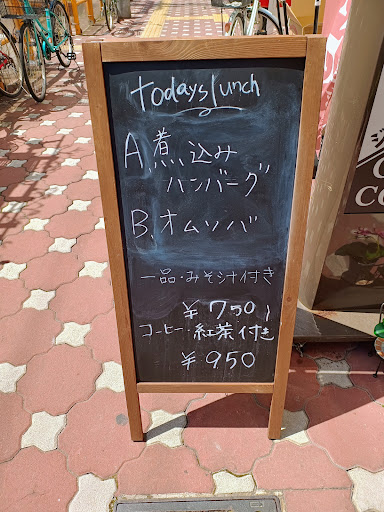 todays lunch
A.煮込み
ハンバーグ
B. オムソバ
一品・みそ汁付き
¥750
コーヒー・紅茶付き
¥950